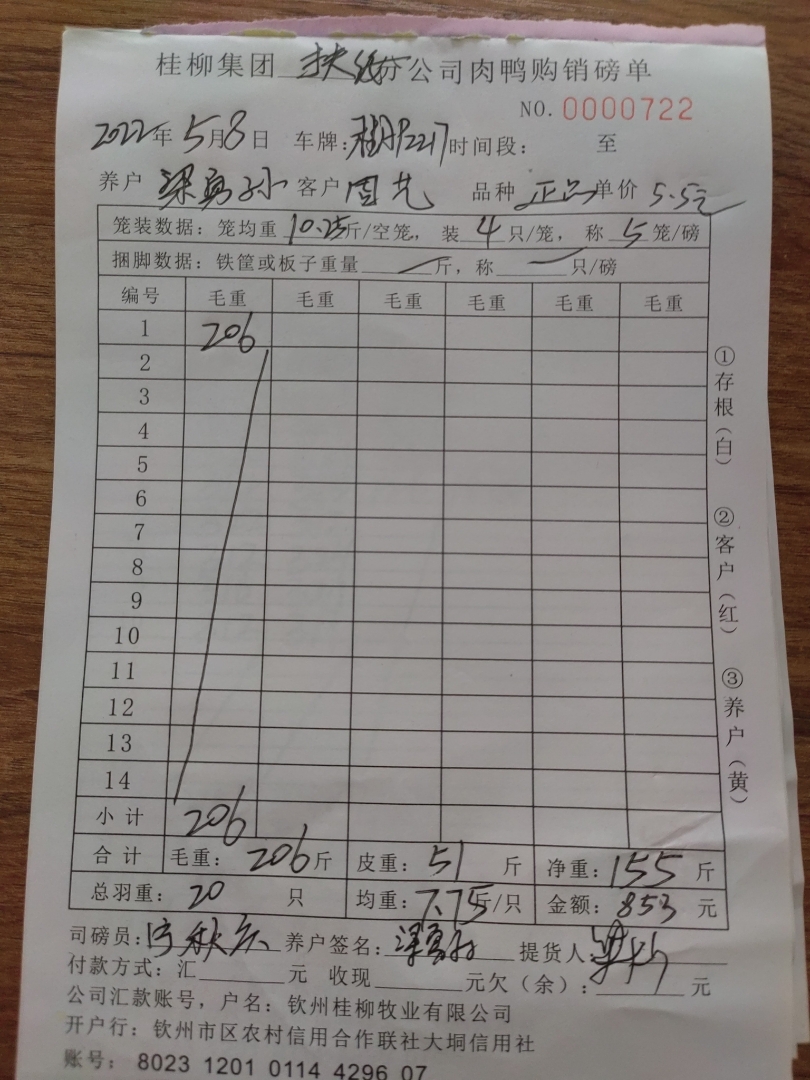 桂柳集团 扶绥分公司肉鸭购销磅单
NO. 0000722
2022年5月8日 车牌: 217 时间段: 至
养户 梁勇孙 客户 周 品种 正品 单价 5.5元
笼装数据: 笼均重 10.25斤/空笼, 装 4 只/笼, 称 5 笼/磅
捆脚数据: 铁筐或板子重量 — 斤, 称 — 只/磅
编号 毛重 毛重 毛重 毛重 毛重 毛重
1 206
2
3
4
5
6
7
8
9
10
11
12
13
14
小计 206
合计 毛重: 206斤 皮重: 51 斤 净重: 155 斤
总羽重: 20 只 均重: 7.75斤/只 金额: 853 元
司磅员: 养户签名: 梁勇孙 提货人
付款方式: 汇 元 收现 元欠(余): 元
公司汇款账号, 户名: 钦州桂柳牧业有限公司
开户行: 钦州市区农村信用合作联社大垌信用社
账号: 8023 1201 0114 4296 07
①存根(白)
②客户(红)
③养户(黄)